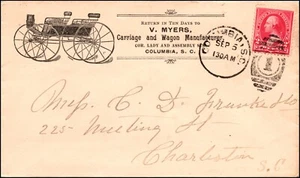 RETURN IN TEN DAYS TO
V. MYERS,
Carriage and Wagon Manufacturer,
COR. LADY AND ASSEMBLY STS.
COLUMBIA, S. C.
COLUMBIA, S.C.
SEP 5
130AM
1
Mess. C. D.
225 Meeting St
Charleston
S.C